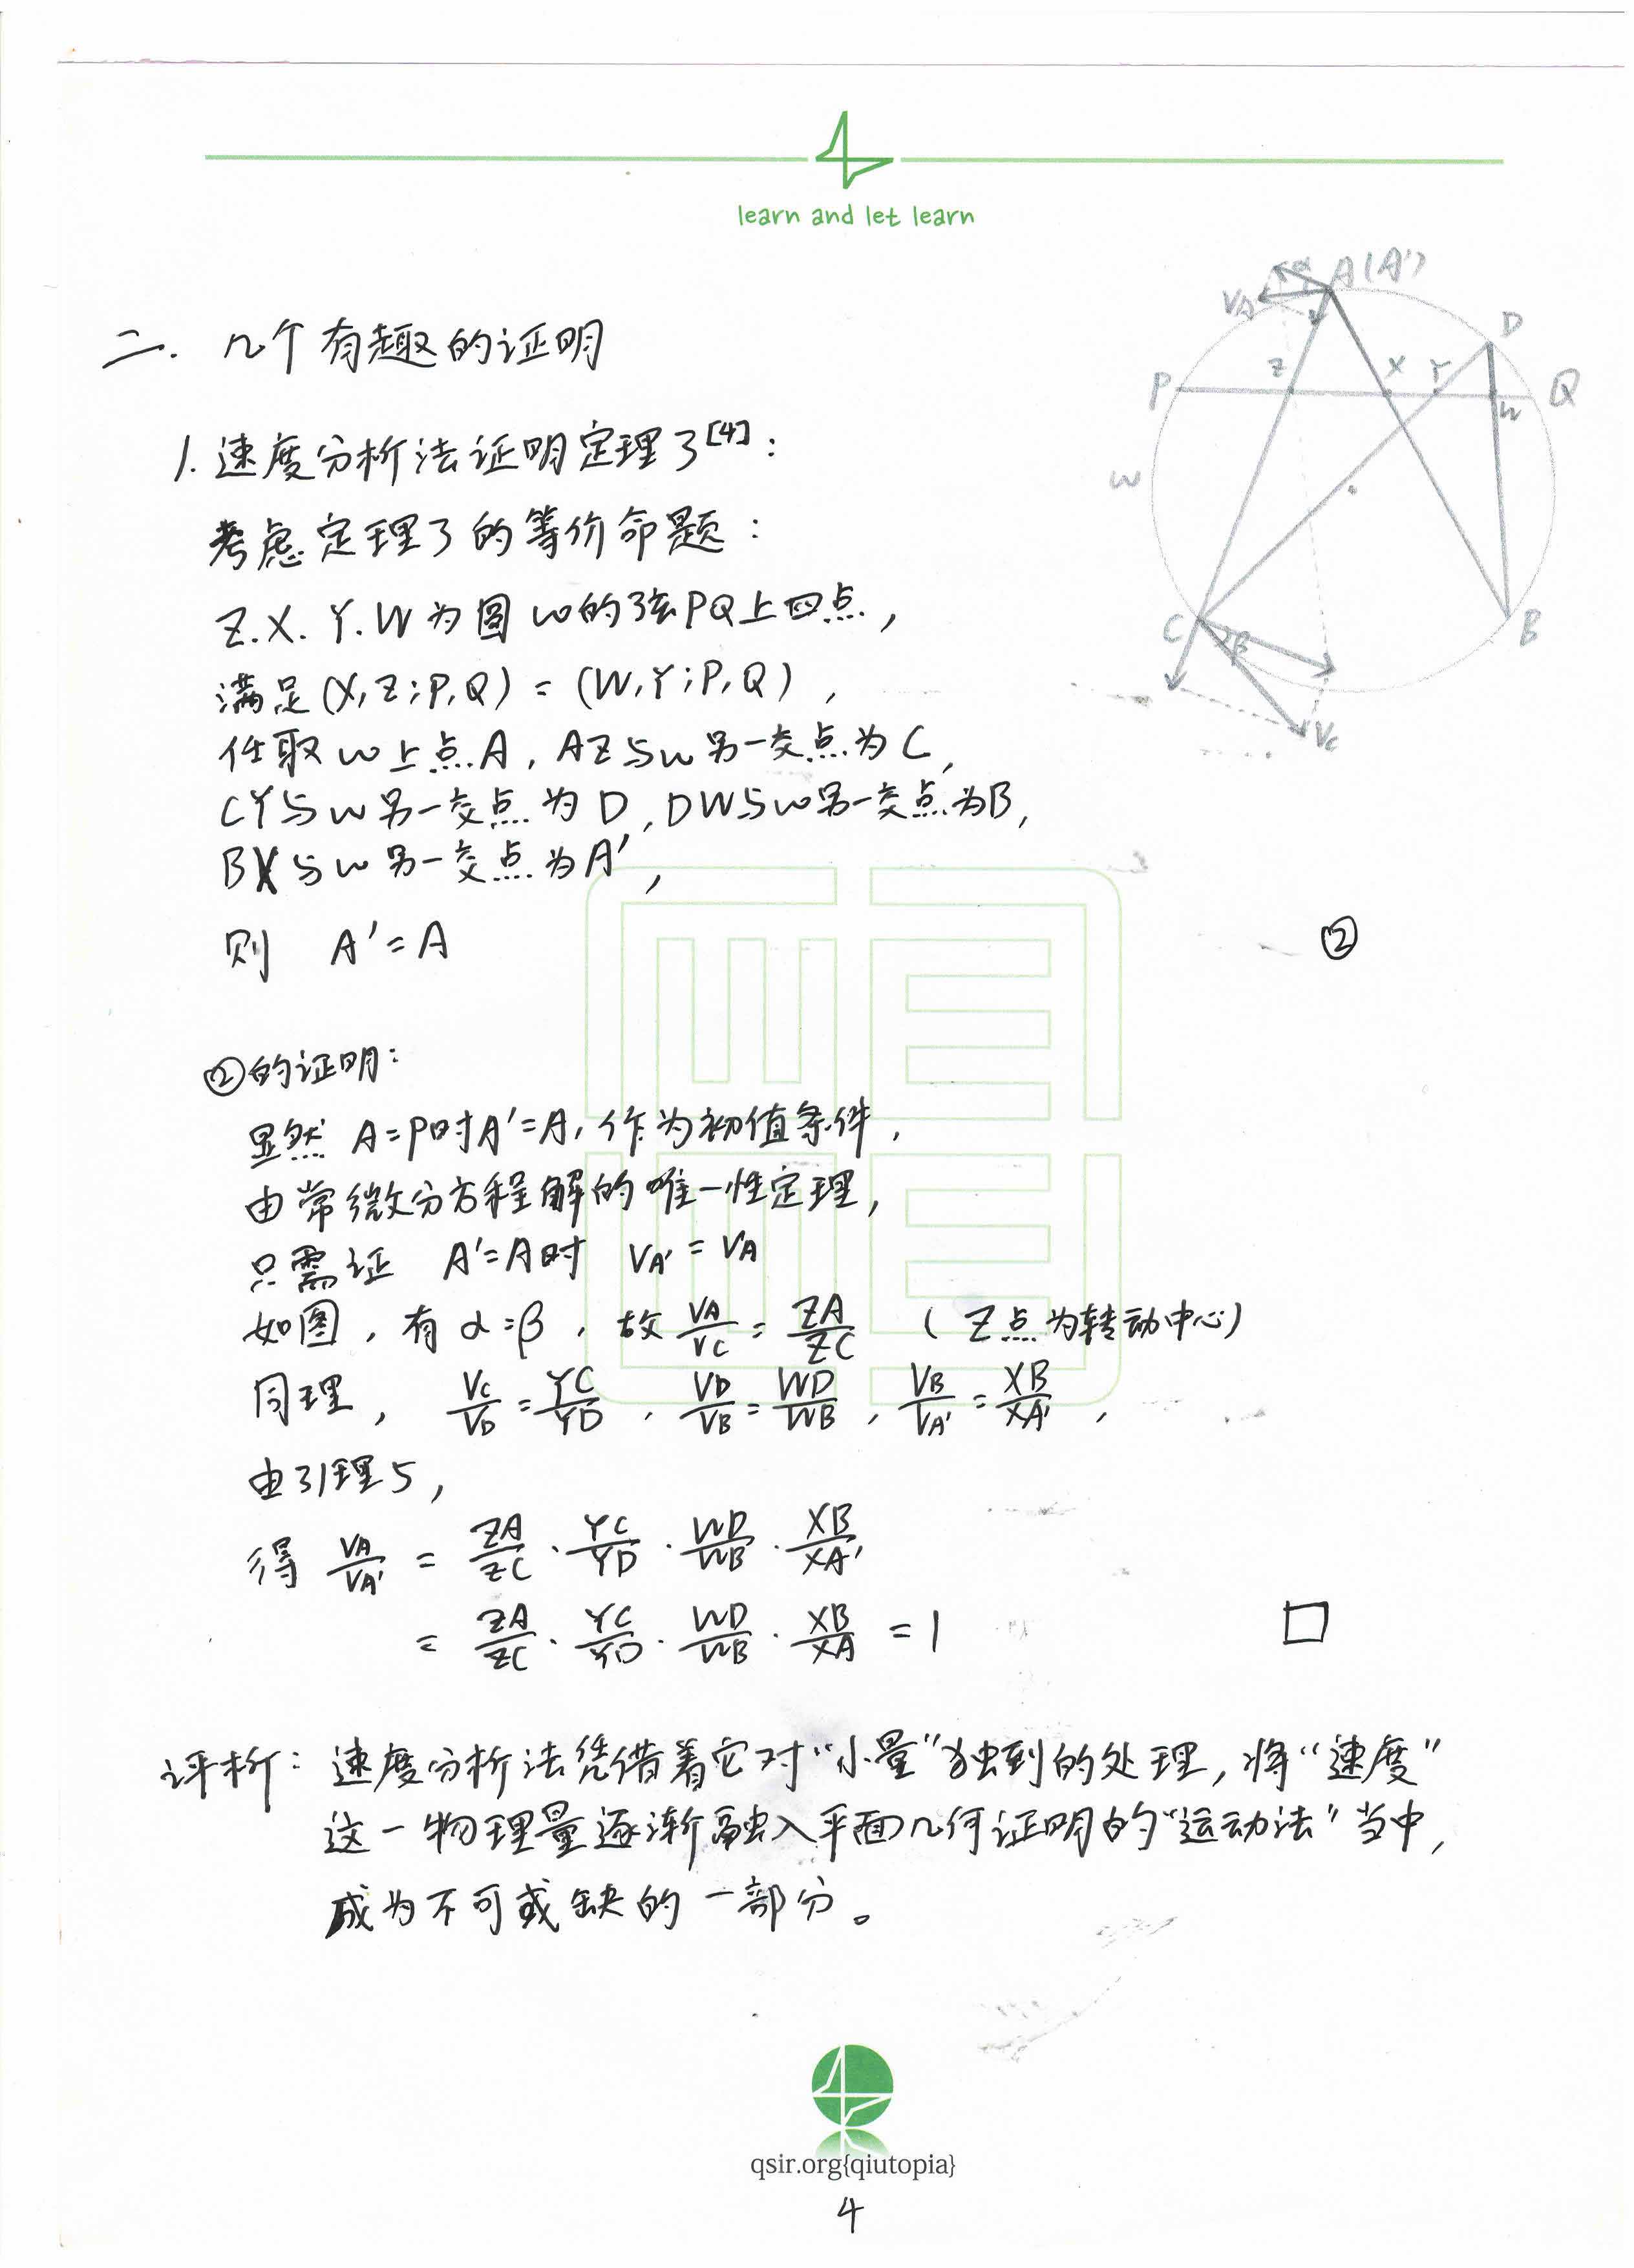 learn and let learn
二. 几个有趣的证明
1. 速度分析法证明定理3[4]:
考虑定理3的等价命题:
Z.X.Y.W为圆ω的弦PQ上四点,
满足(X,Z;P,Q)=(W,Y;P,Q),
任取ω上点A,AZ与ω另一交点为C,
CY与ω另一交点为D,DW与ω另一交点为B,
BX与ω另一交点为A',
则 A'=A ②
VA α A(A')
D
P Z X Y W Q
ω
C β B
Vc
②的证明:
显然 A=P时A'=A,作为初值条件,
由常微分方程解的唯一性定理,
只需证 A'=A时 VA'=VA
如图,有α=β,故 VA/VC = ZA/ZC (Z点为转动中心)
同理, VC/VD = YC/YD , VD/VB = WD/WB , VB/VA' = XB/XA' ,
由引理5,
得 VA/VA' = ZA/ZC · YC/YD · WD/WB · XB/XA'
= ZA/ZC · YC/YD · WD/WB · XB/XA = 1 □
评析: 速度分析法凭借着它对“小量”独到的处理,将“速度”
这一物理量逐渐融入平面几何证明的“运动法”当中,
成为不可或缺的一部分。
qsir.org{qiutopia}
4